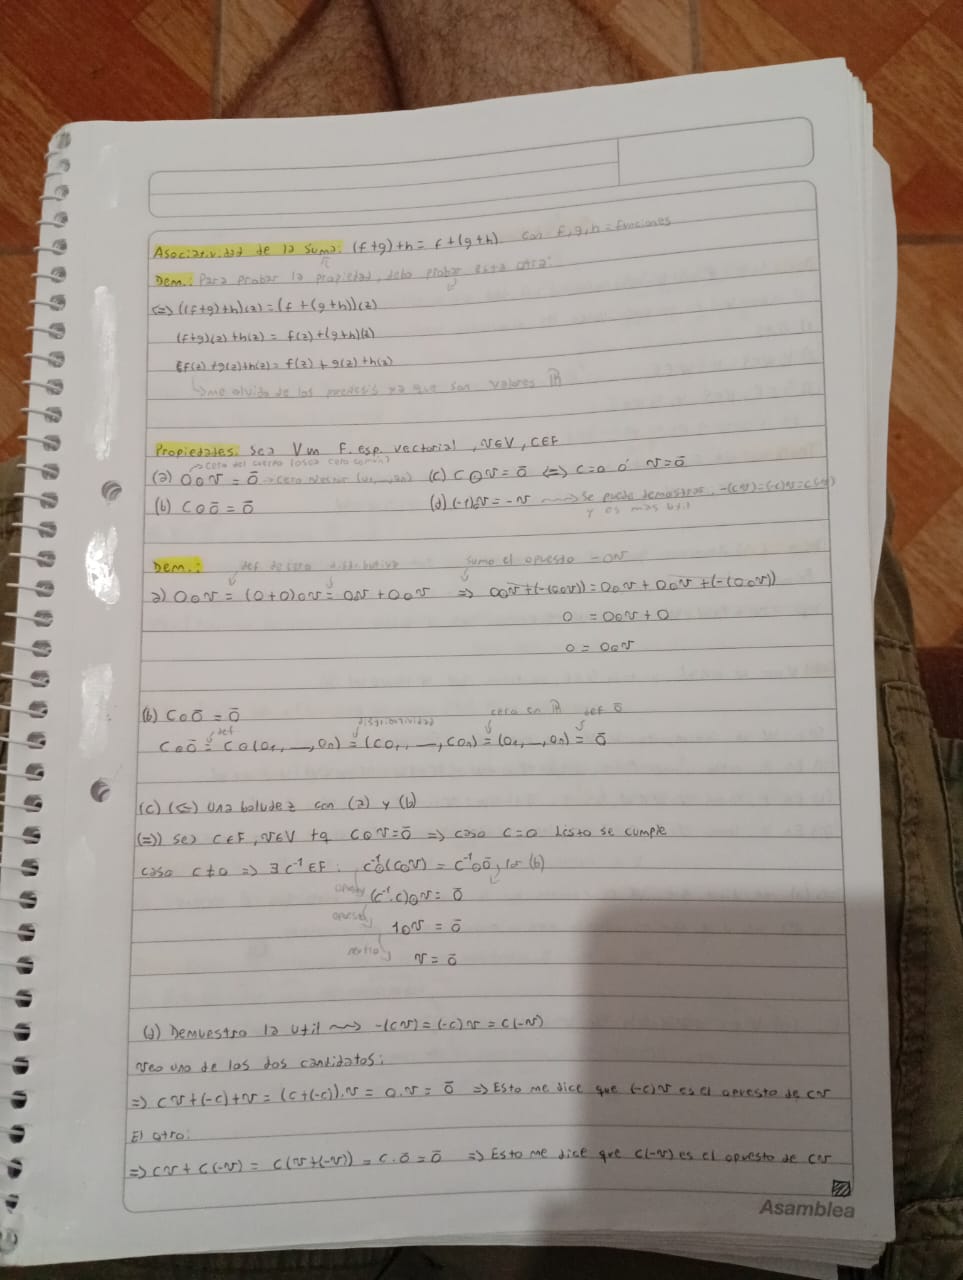 Asociatividad de la suma: (f+g)+h = f+(g+h) con f,g,h = funciones
Dem.: Para probar la propiedad, debo probar esta otra:
<=> ((f+g)+h)(z) = (f+(g+h))(z)
(f+g)(z)+h(z) = f(z)+(g+h)(z)
f(z)+g(z)+h(z) = f(z)+g(z)+h(z)
me olvido de los ya que son valores ℝ
Propiedades. Sea V un F. esp. vectorial, v∈V, c∈F
cero del cuerpo (osea cero común)
(a) 0⊙v = ō → cero vector (c) c⊙v = ō <=> c=0 ó v=ō
(b) c⊙ō = ō (d) (-1)v = -v ⟿ Se puede demostrar, -(cv)=(-c)v=c(-v)
y es más util
Dem.:
def de cero distributiva sumo el opuesto -0v
a) 0⊙v = (0+0)⊙v = 0v+0⊙v => 0⊙v+(-(0⊙v)) = 0⊙v+0⊙v+(-(0⊙v))
0 = 0⊙v+0
0 = 0⊙v
(b) c⊙ō = ō
def cero en ℝ def ō
c⊙ō = c⊙(0₁, __, 0n) = (c0₁, __, c0n) = (0₁, __, 0n) = ō
(c) (<=) Una boludez con (a) y (b)
(=>) Sea c∈F, v∈V tq c⊙v=ō => caso c=0 listo se cumple
caso c≠0 => ∃ c⁻¹∈F: c⁻¹⊙(c⊙v) = c⁻¹⊙ō, (b)
(c⁻¹.c)⊙v = ō
1⊙v = ō
v = ō
(d) Demuestro la util ⟿ -(cv) = (-c)v = c(-v)
Veo uno de los dos candidatos:
=> cv+(-c)+v = (c+(-c)).v = 0.v = ō => Esto me dice que (-c)v es el opuesto de cv
El otro:
=> cv+c(-v) = c(v+(-v)) = c.ō = ō => Esto me dice que c(-v) es el opuesto de cv
Asamblea